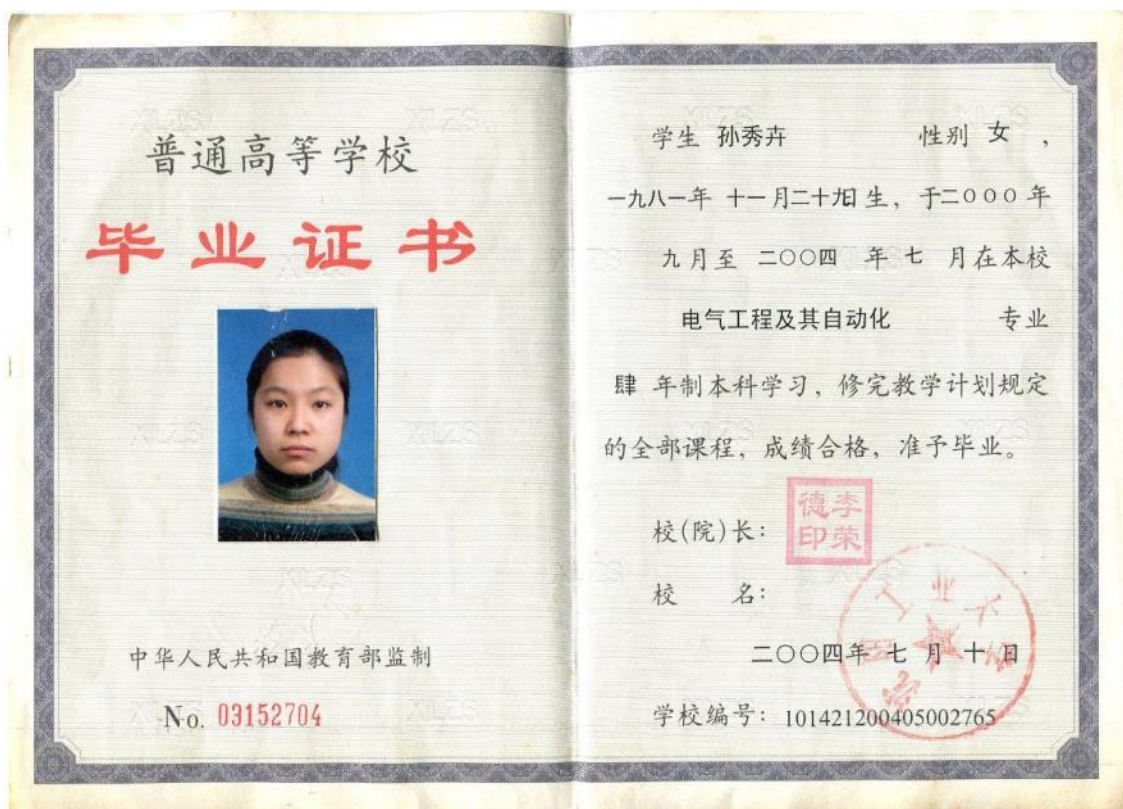 普通高等学校
毕业证书
中华人民共和国教育部监制
No. 03152704
学生 孙秀卉 性别 女 ，
一九八一年 十一月二十九日生，于二000年
九月至 二〇〇四 年 七 月在本校
电气工程及其自动化 专业
肆 年制本科学习，修完教学计划规定
的全部课程，成绩合格，准予毕业。
校(院)长：
李荣德印
校 名：
工业大学
二〇〇四年 七 月 十 日
学校编号：101421200405002765
XLZS